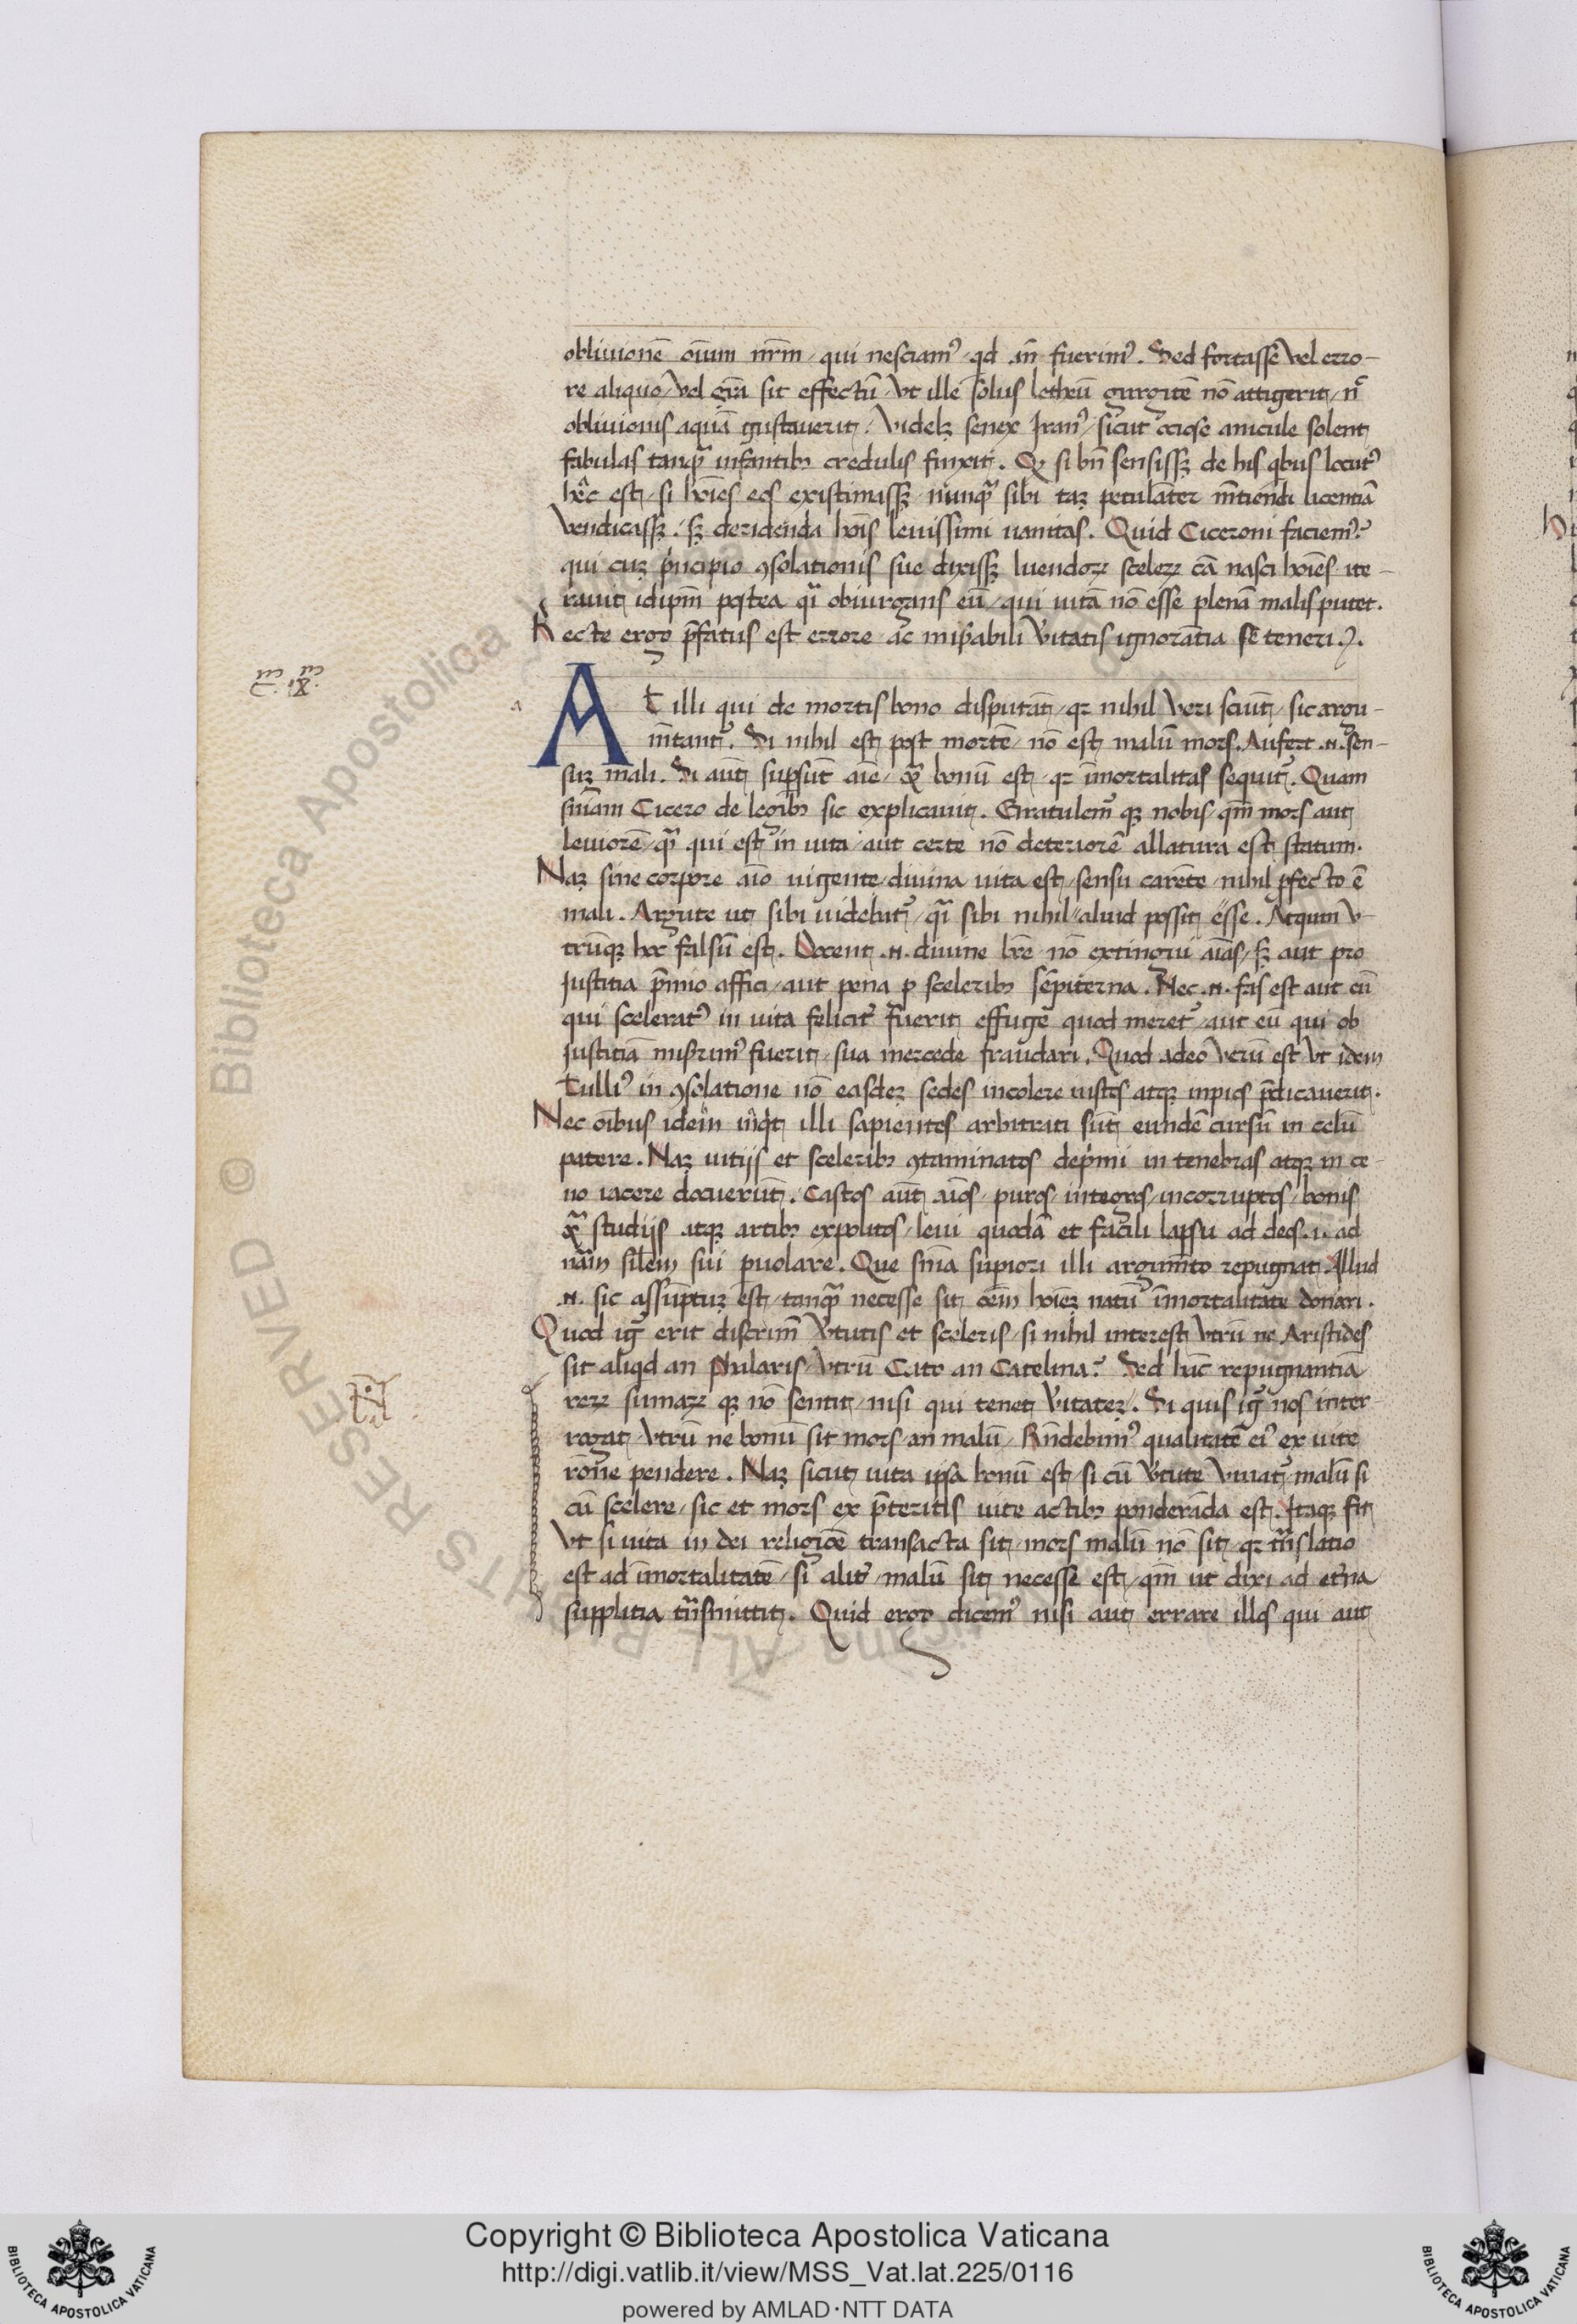 obliuionē oīum nr̄m / qui nesciamꝰ / qd in fuerimꝰ. Sed fortasse vel erro-
re aliquo / vel grā sit effectū / vt ille solus letheū gurgitē nō attigerit / n̄
obliuionis aquā gustauerit. Videlꝫ senex uanꝰ / sicut ociose anicule solent
fabulas tanqͣ infantibꝫ credulis finxit. Qꝫ si bn̄ sensissꝫ de his qbus locutꝰ
est / si hoīes eos existimassꝫ nunqͣ sibi taꝫ petulāter mētiendi licentiā
vendicassꝫ. sꝫ deridenda hoīs leuissimi uanitas. Quid Ciceroni faciemꝰ?
qui cuꝫ pͥncipio ꝯsolationis sue dixissꝫ luendoꝝ sceleꝝ cā nasci hoīes ite-
rauit idipm̄ postea qͣi obiurgans eū / qui uitā nō esse plenā malis putet.
Recte ergo p̄fatus est errore ac miserabili v̓itatis ignorātia se teneri.
.Xi. cu cu
a
At illi qui de mortis bono disputāt / qꝛ nihil veri sciūt / sic argu-
mētantᷣ. Si nihil est post mortē / nō est malū mors. Aufert .n. sen-
suꝫ mali. Si aūt suꝑsūt aīe / bonū est / qꝛ īmortalitas sequitᷣ. Quam
sn̄iam Cicero de legibꝫ sic explicauit. Gratulemᷣ qꝫ nobis / qm̄ mors aut
leuiorē / qͣ qui est in uita / aut certe nō deteriorē allatura est statum.
Naꝫ sine corpore aīo uigente / diuina uita est / sensu carēte / nihil ꝓfecto ē
mali. Argute ut sibi uidebatᷣ / qͣi sibi nihil aliud possit esse. Atquin v-
trūqꝫ hoc falsū est. Docent .n. diuine lr̄e nō extingui aīas / sꝫ aut pro
Justitia p̄mio affici / aut pena ꝓ sceleribꝫ sēpiterna. Nec .n. fas est aut eū
qui sceleratꝰ in uita felicit̓ fuerit effugē quod meretᷣ / aut eū qui ob
Justitiā miserrimꝰ fuerit / sua mercede fraudari. Quod adeo verū est vt idem
Tulliꝰ in ꝯsolatione nō easdeꝫ sedes incolere iustos atqꝫ inpios p̄dicauerit.
Nec oībus idem inqͥt illi sapientes arbitrati sūt eundē cursū in celū
patere. Naꝫ uitijs et sceleribꝫ ꝯtaminatos depͥmi in tenebras atqꝫ in ce-
no iacere docuerūt. Castos aūt aīos / puros / integros / incorruptos / bonis
studijs atqꝫ artibꝫ expolitos / leui quodā et facili lapsu ad deos .i. ad
nāam silem̄ sui ꝑuolare. Que sn̄ia suꝑiori illi argumēto repugnat. Illud
.n. sic assūptuꝫ est / tanqͣ necesse sit oēm hoīeꝫ natū īmortalitate donari.
Quod igᷣ erit discrimē v̓tutis et sceleris / si nihil interest vtrū ne Aristides
sit aliqd an Phularis / vtrū Cato an Catelina? Sed hāc repugnantiā
reꝝ sumaꝝ qꝫ nō sentit / nisi qui tenet v̓itateꝫ. Si quis igᷣ nos inter-
rogat / vtrū ne bonū sit mors / an malū / Rn̄debimꝰ qualitatē eiꝰ ex uite
rōne pendere. Naꝫ sicut uita ipsa bonū est / si cū v̓tute viuatᷣ / malū si
cū scelere / sic et mors ex p̄teritis uite actibꝫ ponderāda est. Itaqꝫ fit
vt si uita in dei religiōe transacta sit / mors malū nō sit / qꝛ trāslatio
est ad īmortalitatē / si alit̓ / malū sit necesse est / qm̄ ut dixi ad et̓na
supplitia trāsmittit. Quid ergo dicemꝰ nisi aut errare illos qui aut
Copyright © Biblioteca Apostolica Vaticana
http://digi.vatlib.it/view/MSS_Vat.lat.225/0116
powered by AMLAD·NTT DATA